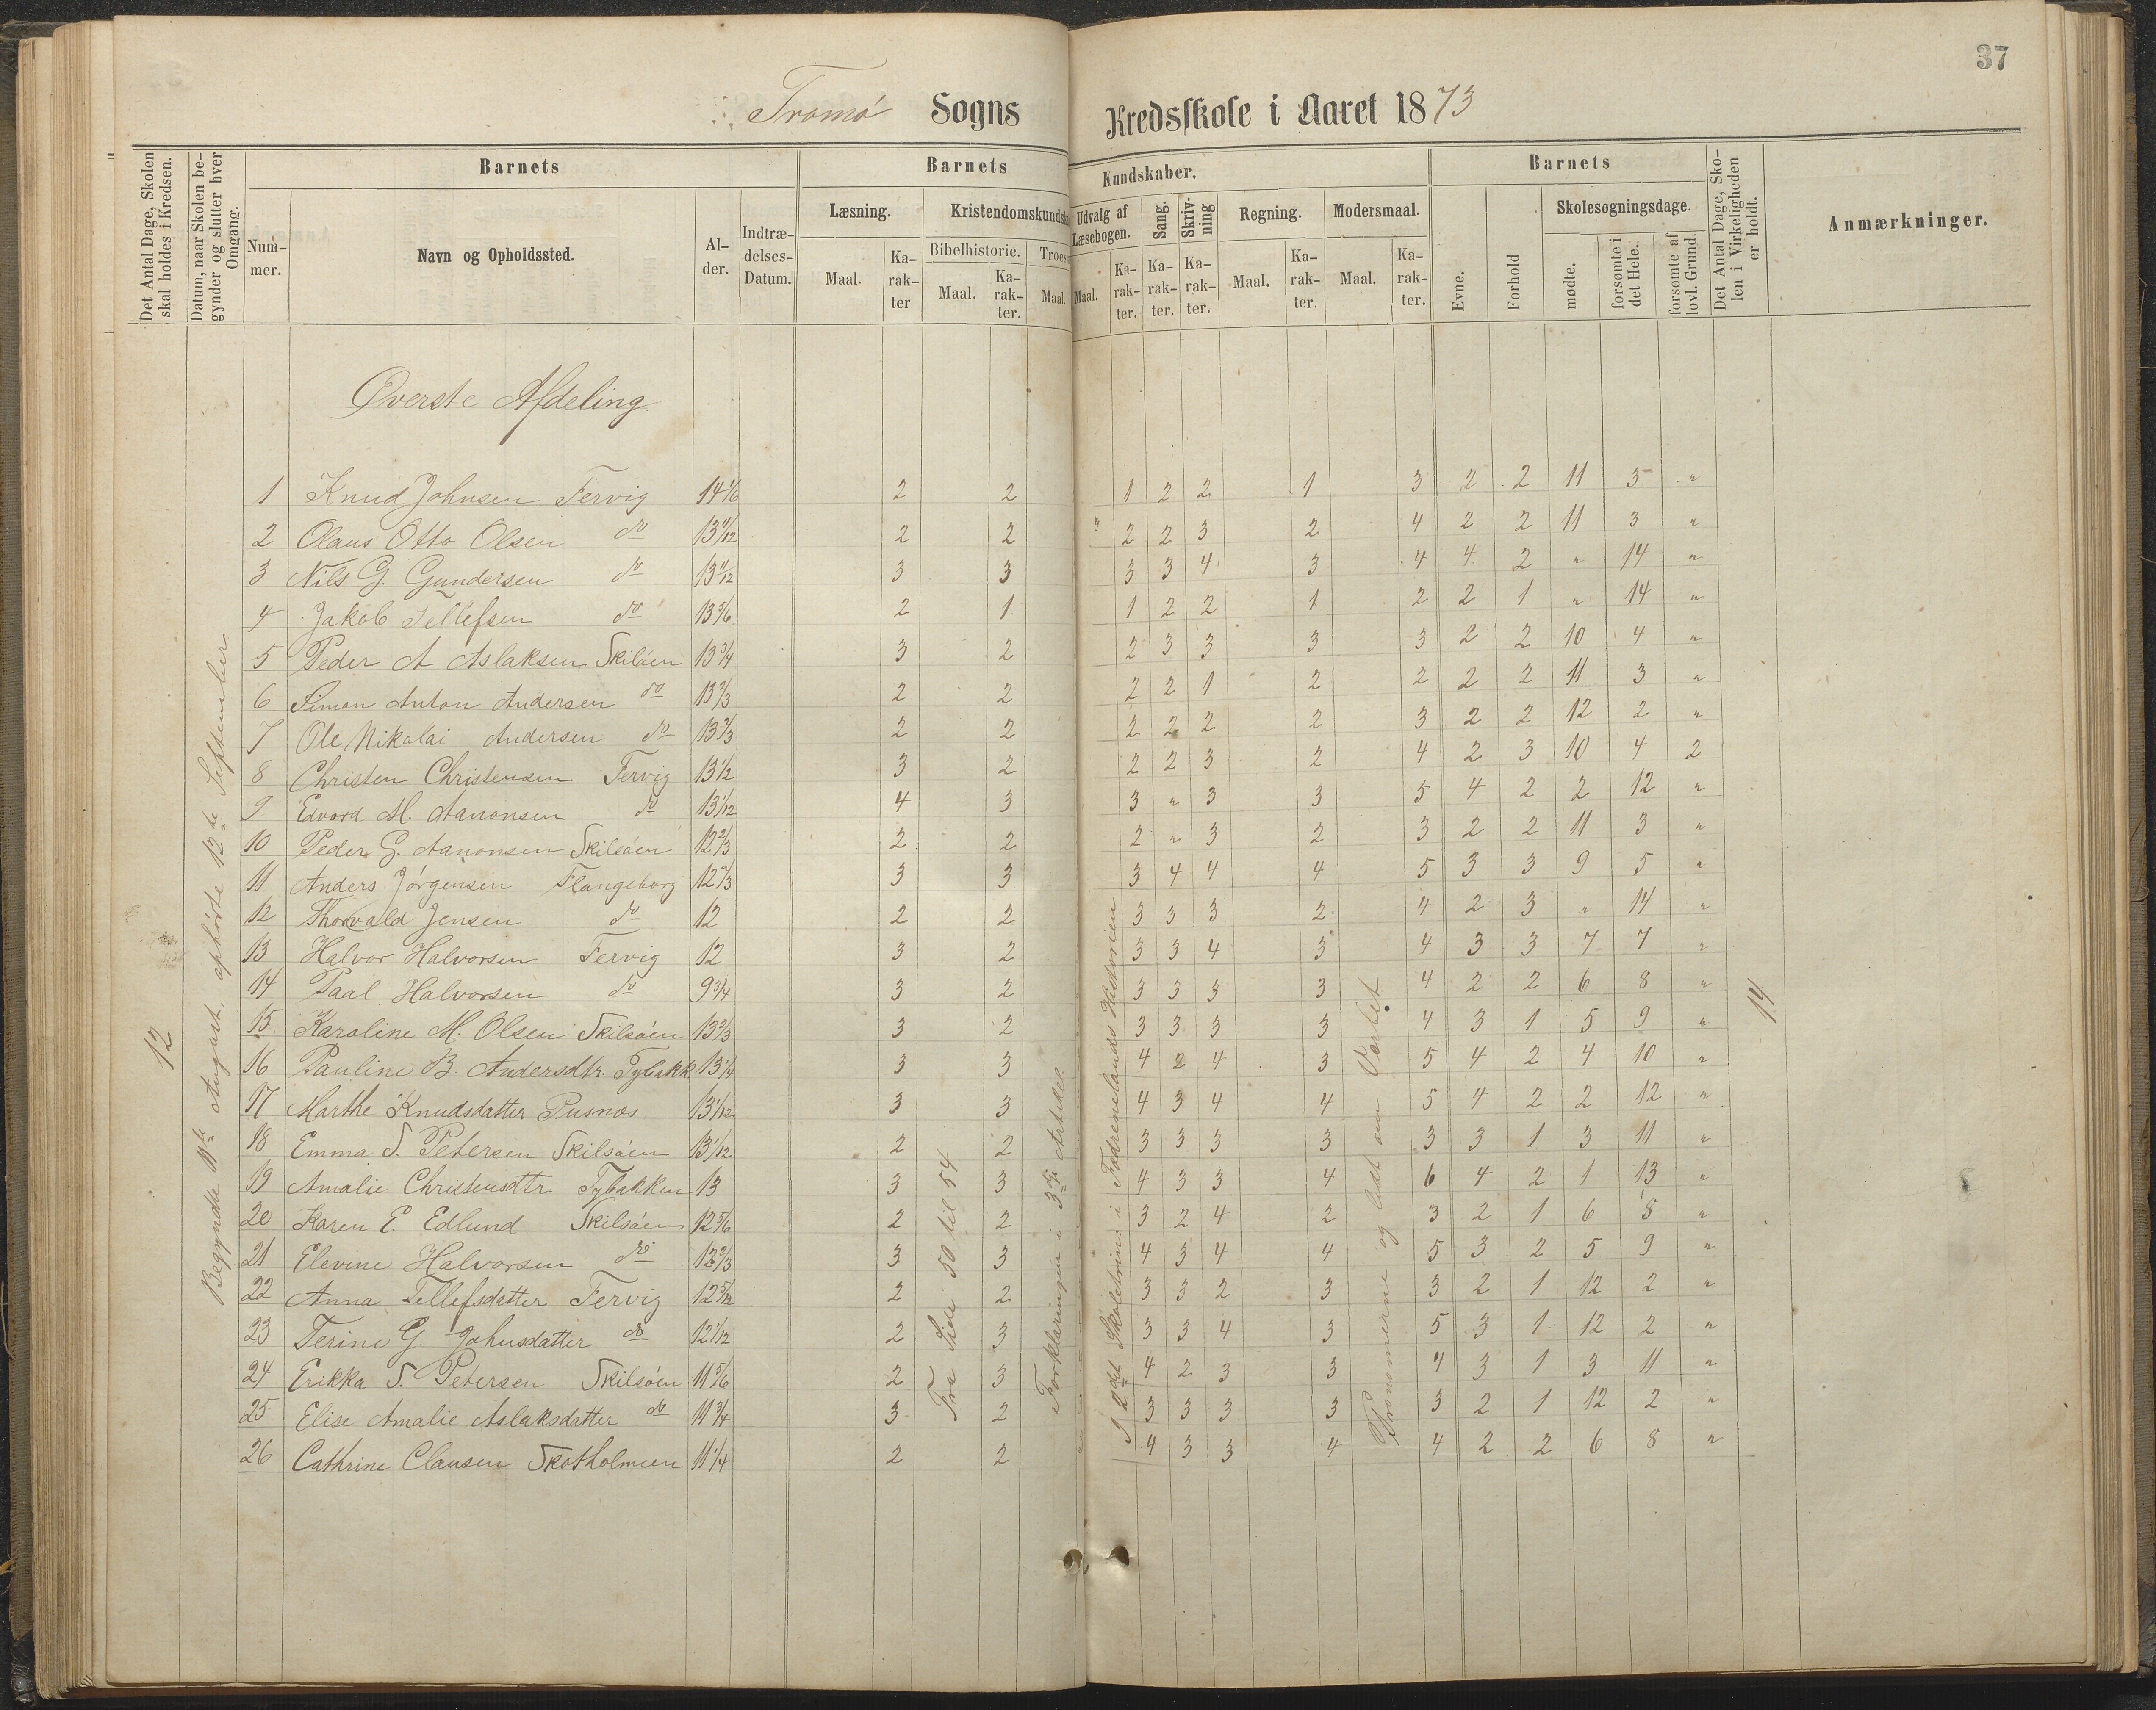 37
Tromø Sogns Kredsskole i Aaret 1873
Det Antal Dage, Skolen skal holdes i Kredsen.
Datum, naar Skolen begynder og slutter hver Omgang.
Barnets
Nummer.
Navn og Opholdssted.
Alder.
Indtrædelses-Datum.
Barnets Kundskaber.
Læsning.
Maal.
Karakter
Kristendomskundsk
Bibelhistorie.
Maal.
Karakter.
Troes
Maal.
Udvalg af Læsebogen.
Maal.
Karakter.
Sang.
Karakter.
Skrivning
Karakter.
Regning.
Maal.
Karakter.
Modersmaal.
Maal.
Karakter.
Barnets
Evne.
Forhold
Skolesøgningsdage.
mødte.
forsømte i det Hele.
forsømte af lovl. Grund.
Det Antal Dage, Skolen i Virkeligheden er holdt.
Anmærkninger.
Øverste Afdeling
1 Knud Johnsen Fervig 14 1/6 2 2 1 2 2 1 3 2 2 11 3 "
2 Olaus Otto Olsen do 13 11/12 2 2 2 2 3 2 4 2 2 11 3 "
3 Nils G. Gundersen do 13 11/12 3 3 3 3 4 3 4 4 2 " 14 "
4 Jakob Tellefsen do 13 5/6 2 1 1 2 2 1 2 2 1 " 14 "
5 Peder A Aslaksen Skilsøen 13 3/4 3 2 2 3 3 3 3 2 2 10 4 "
6 Simon Anton Andersen do 13 2/3 2 2 2 2 1 2 2 2 2 11 3 "
7 Ole Nikolai Andersen do 13 2/3 2 2 2 2 2 2 3 2 2 12 2 "
8 Christen Christensen Fervig 13 1/2 3 2 2 2 3 2 4 2 3 10 4 2
9 Edvard M. Aanonsen do 13 1/12 4 3 3 " 3 3 5 4 2 2 12 "
10 Peder G. Aanonsen Skilsøen 12 2/3 2 2 2 " 3 2 3 2 2 11 3 "
11 Anders Jørgensen Flangeborg 12 2/3 3 3 3 4 4 4 5 3 3 9 5 "
12 Thorvald Jensen do 12 2 2 3 3 3 2 4 2 3 " 14 "
13 Halvor Halvorsen Fervig 12 3 2 3 3 4 3 4 3 3 7 7 "
14 Paal Halvorsen do 9 3/4 3 2 3 3 3 3 4 2 2 6 8 "
15 Karoline M. Olsen Skilsøen 13 2/3 3 2 3 3 3 3 4 3 1 5 9 "
16 Pauline B. Andersdtr. Tybakk. 13 1/4 3 3 4 2 4 3 5 4 2 4 10 "
17 Marthe Knudsdatter Pusnæs 13 1/12 3 3 4 3 4 4 5 4 2 2 12 "
18 Emma S. Petersen Skilsøen 13 1/12 2 2 3 3 3 3 3 3 1 3 11 "
19 Amalie Christensdtr Tybakken 13 3 3 4 3 3 4 6 4 2 1 13 "
20 Karen E. Edlund Skilsøen 12 5/6 2 2 3 2 4 2 3 2 1 6 8 "
21 Elevine Halvorsen do 12 2/3 3 3 4 3 4 4 5 3 2 5 9 "
22 Anna Tellefsdatter Fervig 12 5/12 2 2 3 3 2 3 3 2 1 12 2 "
23 Terine G. Johnsdatter do 12 1/12 2 3 3 3 4 3 5 3 1 12 2 "
24 Erikka S. Petersen Skilsøen 11 5/6 2 3 4 2 3 3 4 3 1 3 11 "
25 Elise Amalie Aslaksdatter do 11 3/4 3 2 3 3 3 3 3 2 1 12 2 "
26 Cathrine Clausen Skotholmen 11 1/4 2 2 4 3 3 4 4 2 2 6 8 "
12
Begyndte 11te August, ophørte 12te September
Fra Side 50 til 54
Forklaringen i 3die Artikel
I 2det Skoletrin: i Fædrenelandets Historien
Pronomerne og lidt om Verbet
14